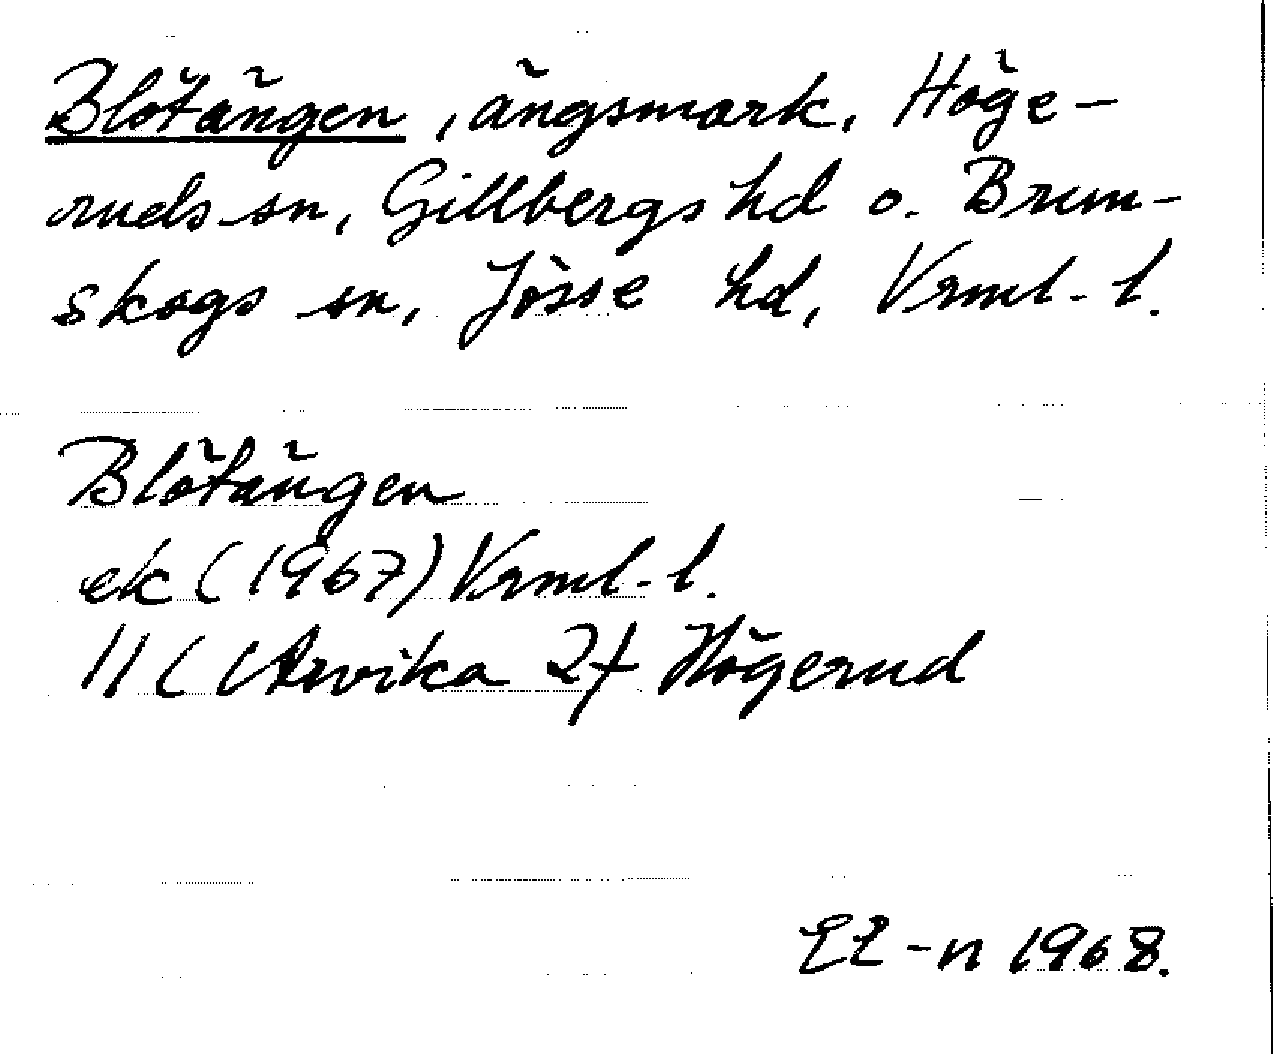 Blötängen, ängsmark, Höge-
ruds sn, Gillbergs hd o. Brun-
skogs sn, Jösse hd, Vrml-l.
Blötängen
ek (1967) Vrml-l.
11 C (Arvika 2f Högerud
EL-n 1968.